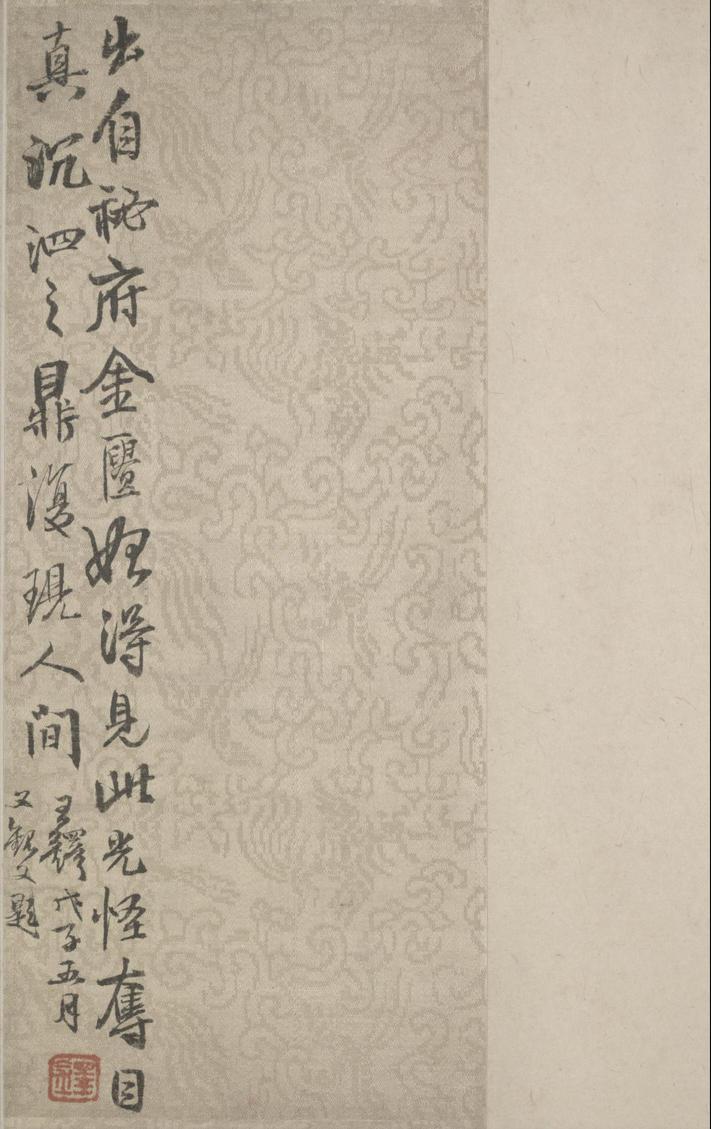 出自秘府金匱始得見此光怪奪目
真沉泗之鼎復現人間
王鐸戊子五月
又觀又題